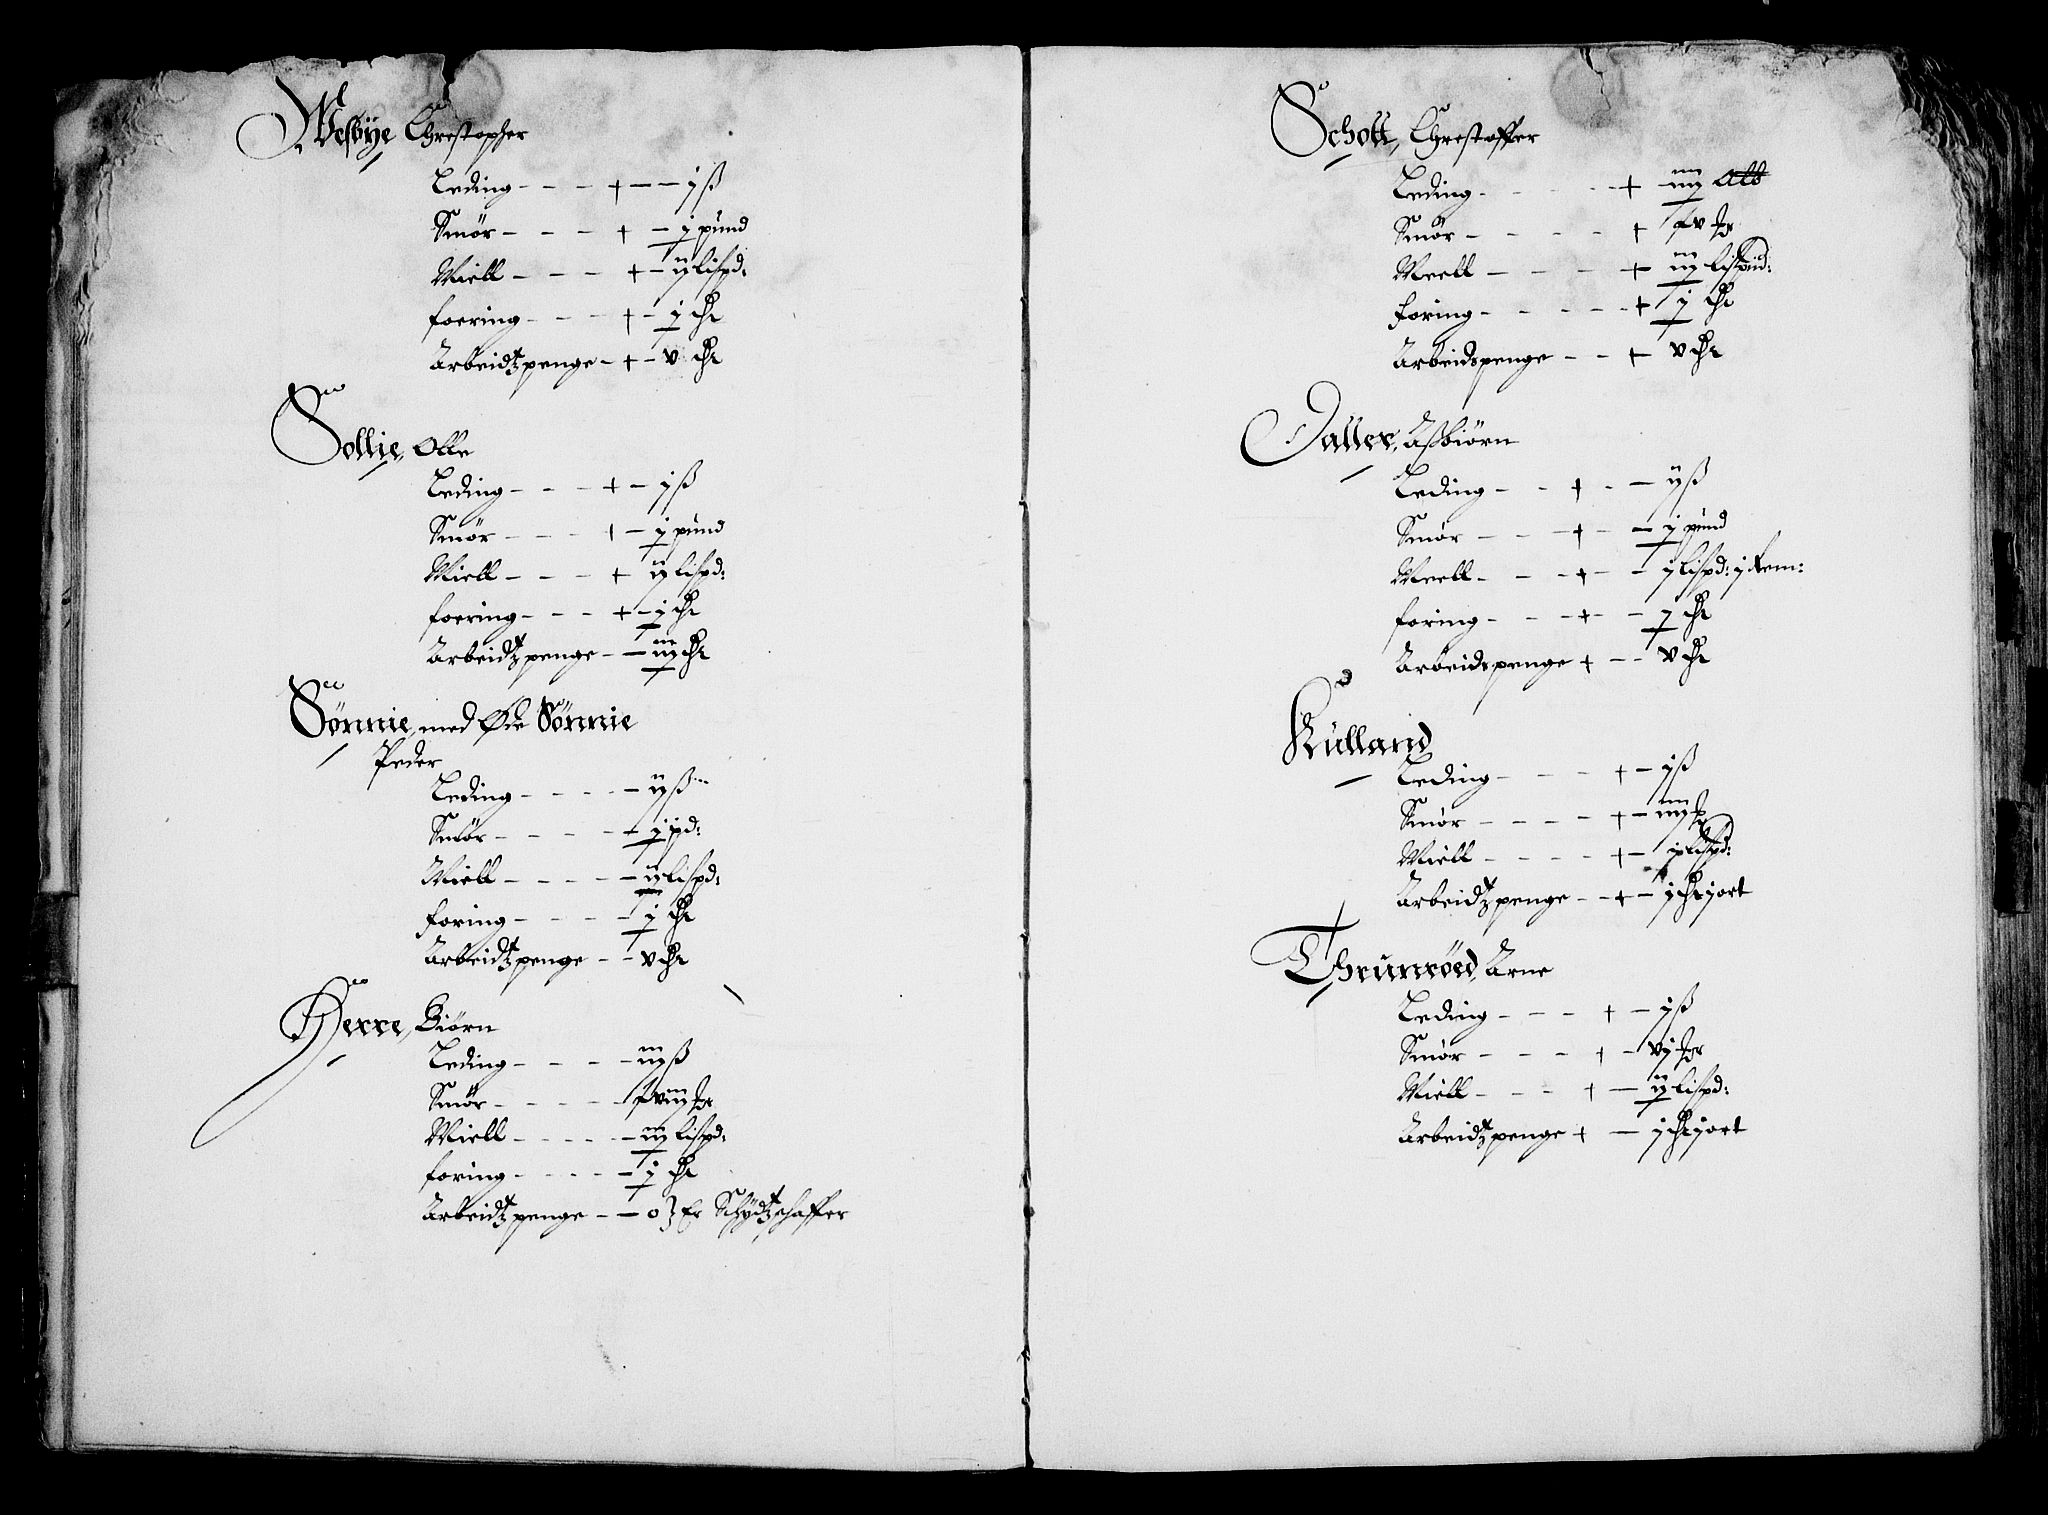 Wesbye Chrestopher
Leding - - - + - - j ß
Smör - - - + - j pund
Miell - - - + - ij lispd:
foering - - - + - j
Arbeidtzpenge - + - v
Sollie, Olle
Leding - - - + - j ß
Smör - - - + - j pund
Miell - - - + ij lispd:
foering - - - + - j
Arbeidtzpenge - - iij
Sönnie, med Öde Sönnie
Peder
Leding - - - - - ij ß
Smör - - - - - j pd:
Miell - - - - ij lispd:
foring - - - - j
Arbeidtzpenge - - v
Herre, Biörn
Leding - - - - - iij ß
Smör - - - - -
Miell - - - - - iij lispd:
foring - - - - - j
Arbeidtzpenge - - 0} Er Schydtzschaffer
Schott, Chrestoffer
Leding - - - - + - iiij alb
Smör - - - - +
Meell - - - + - iij lispund:
foring - - - - - + j
Arbeidspenge - - + v
Taller, Assbiörn
Leding - - + - - ij ß
Smör - - - + - - j pund
Meell - - - + - - j lispd: j Rem:
foring - - - + - - j
Arbeidspenge + - - v
Kulland
Leding - - - + - j ß
Smör - - - - + - iiij
Miell - - - - + - j lispd:
Arbeidtzpenge - - + - j j ort
Thrunröed, Arne
Leding - - - + - j ß
Smör - - - + - vj
Miell - - - + - ij lispd:
Arbeidtzpenge + - j j ort